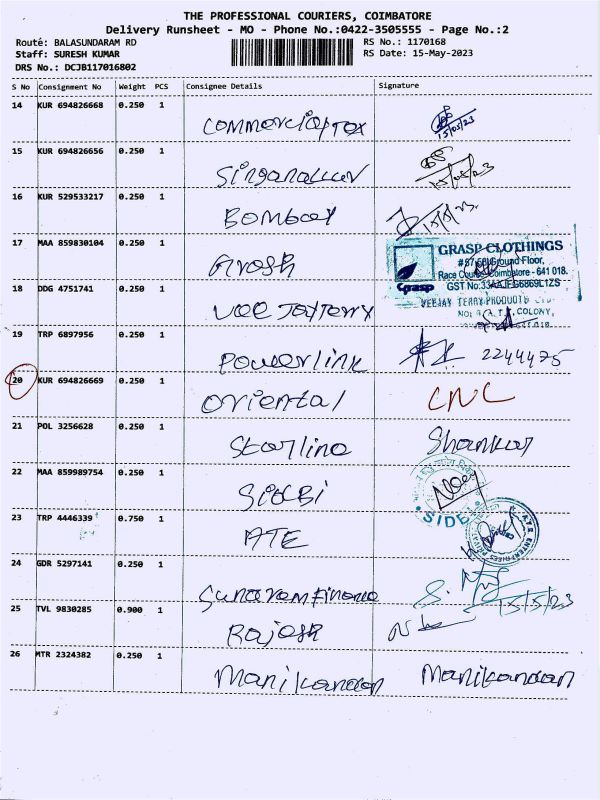 THE PROFESSIONAL COURIERS, COIMBATORE
Delivery Runsheet - MO - Phone No.:0422-3505555 - Page No.:2
Routé: BALASUNDARAM RD
RS No.: 1170168
Staff: SURESH KUMAR
RS Date: 15-May-2023
DRS No.: DCJB117016802
S No Consignment No Weight PCS Consignee Details Signature
14 KUR 694826668 0.250 1 Commercial Tax 15/05/23
15 KUR 694826656 0.250 1 Singanallur 15/05/23
16 KUR 529533217 0.250 1 Bombay 15/5/23
17 MAA 859830104 0.250 1
GRASP CLOTHINGS
Ground Floor,
Race Course, Coimbatore - 641 018.
Grasp
18 DDG 4751741 0.250 1 Vee Jay Terry
VEEJAY TERRY PRODUCTS LTD
COLONY,
19 TRP 6897956 0.250 1 Powerlink 2244475
20 KUR 694826669 0.250 1 Oriental CNC
21 POL 3256628 0.250 1 Starline Shankar
22 MAA 859989754 0.250 1 Sidbi
SIDBI
23 TRP 4446339 0.750 1 ATE
24 GDR 5297141 0.250 1 Sundaram Finance 15/5/23
25 TVL 9830285 0.900 1 Rajesh
26 MTR 2324382 0.250 1 Manikandan Manikandan